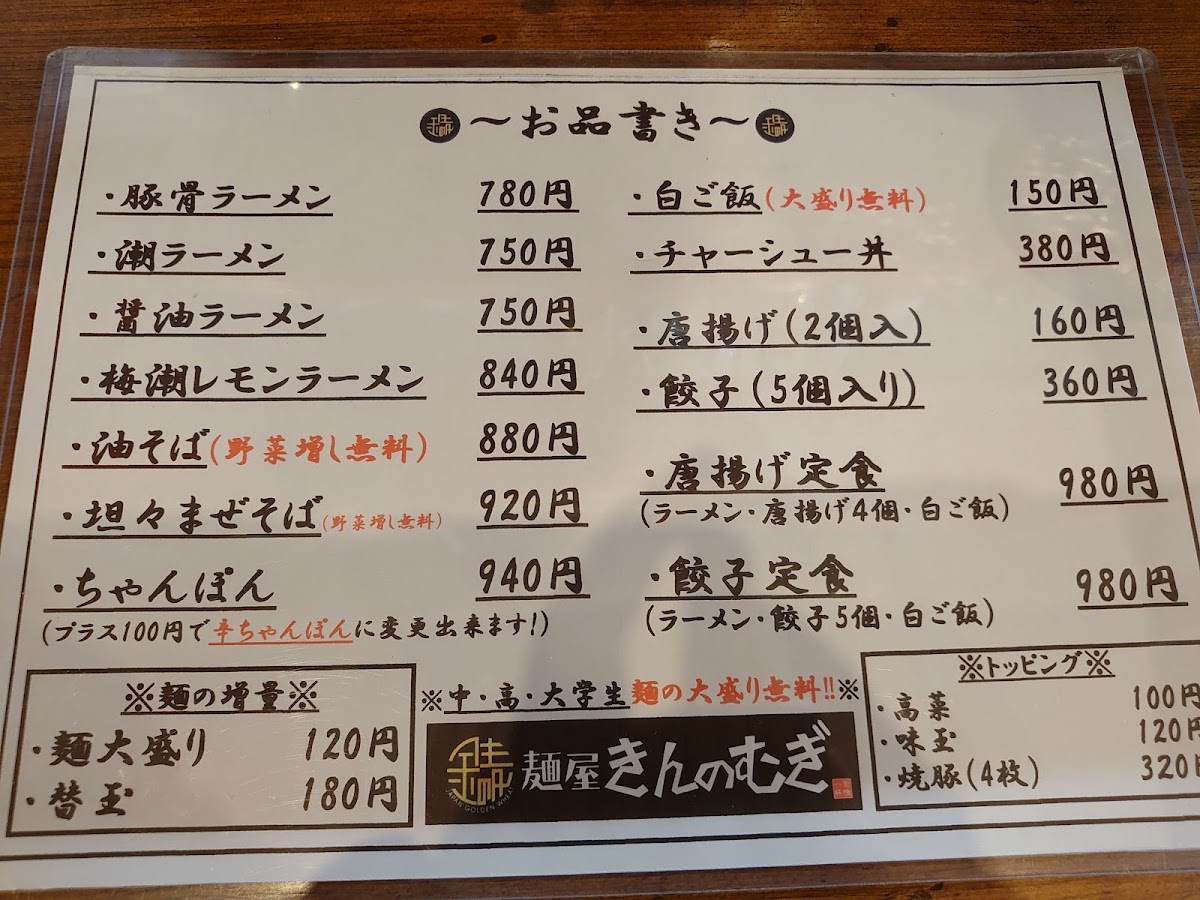 〜お品書き〜
・豚骨ラーメン 780円
・潮ラーメン 750円
・醤油ラーメン 750円
・梅潮レモンラーメン 840円
・油そば(野菜増し無料) 880円
・坦々まぜそば(野菜増し無料) 920円
・ちゃんぽん 940円
(プラス100円で辛ちゃんぽんに変更出来ます!)
・白ご飯(大盛り無料) 150円
・チャーシュー丼 380円
・唐揚げ(2個入) 160円
・餃子(5個入り) 360円
・唐揚げ定食 980円
(ラーメン・唐揚げ4個・白ご飯)
・餃子定食 980円
(ラーメン・餃子5個・白ご飯)
※麺の増量※
・麺大盛り 120円
・替玉 180円
※中・高・大学生麺の大盛り無料!!※
麺屋 きんのむぎ
JAPAN GOLDEN WHEAT
※トッピング※
・高菜 100円
・味玉 120円
・焼豚(4枚) 320円